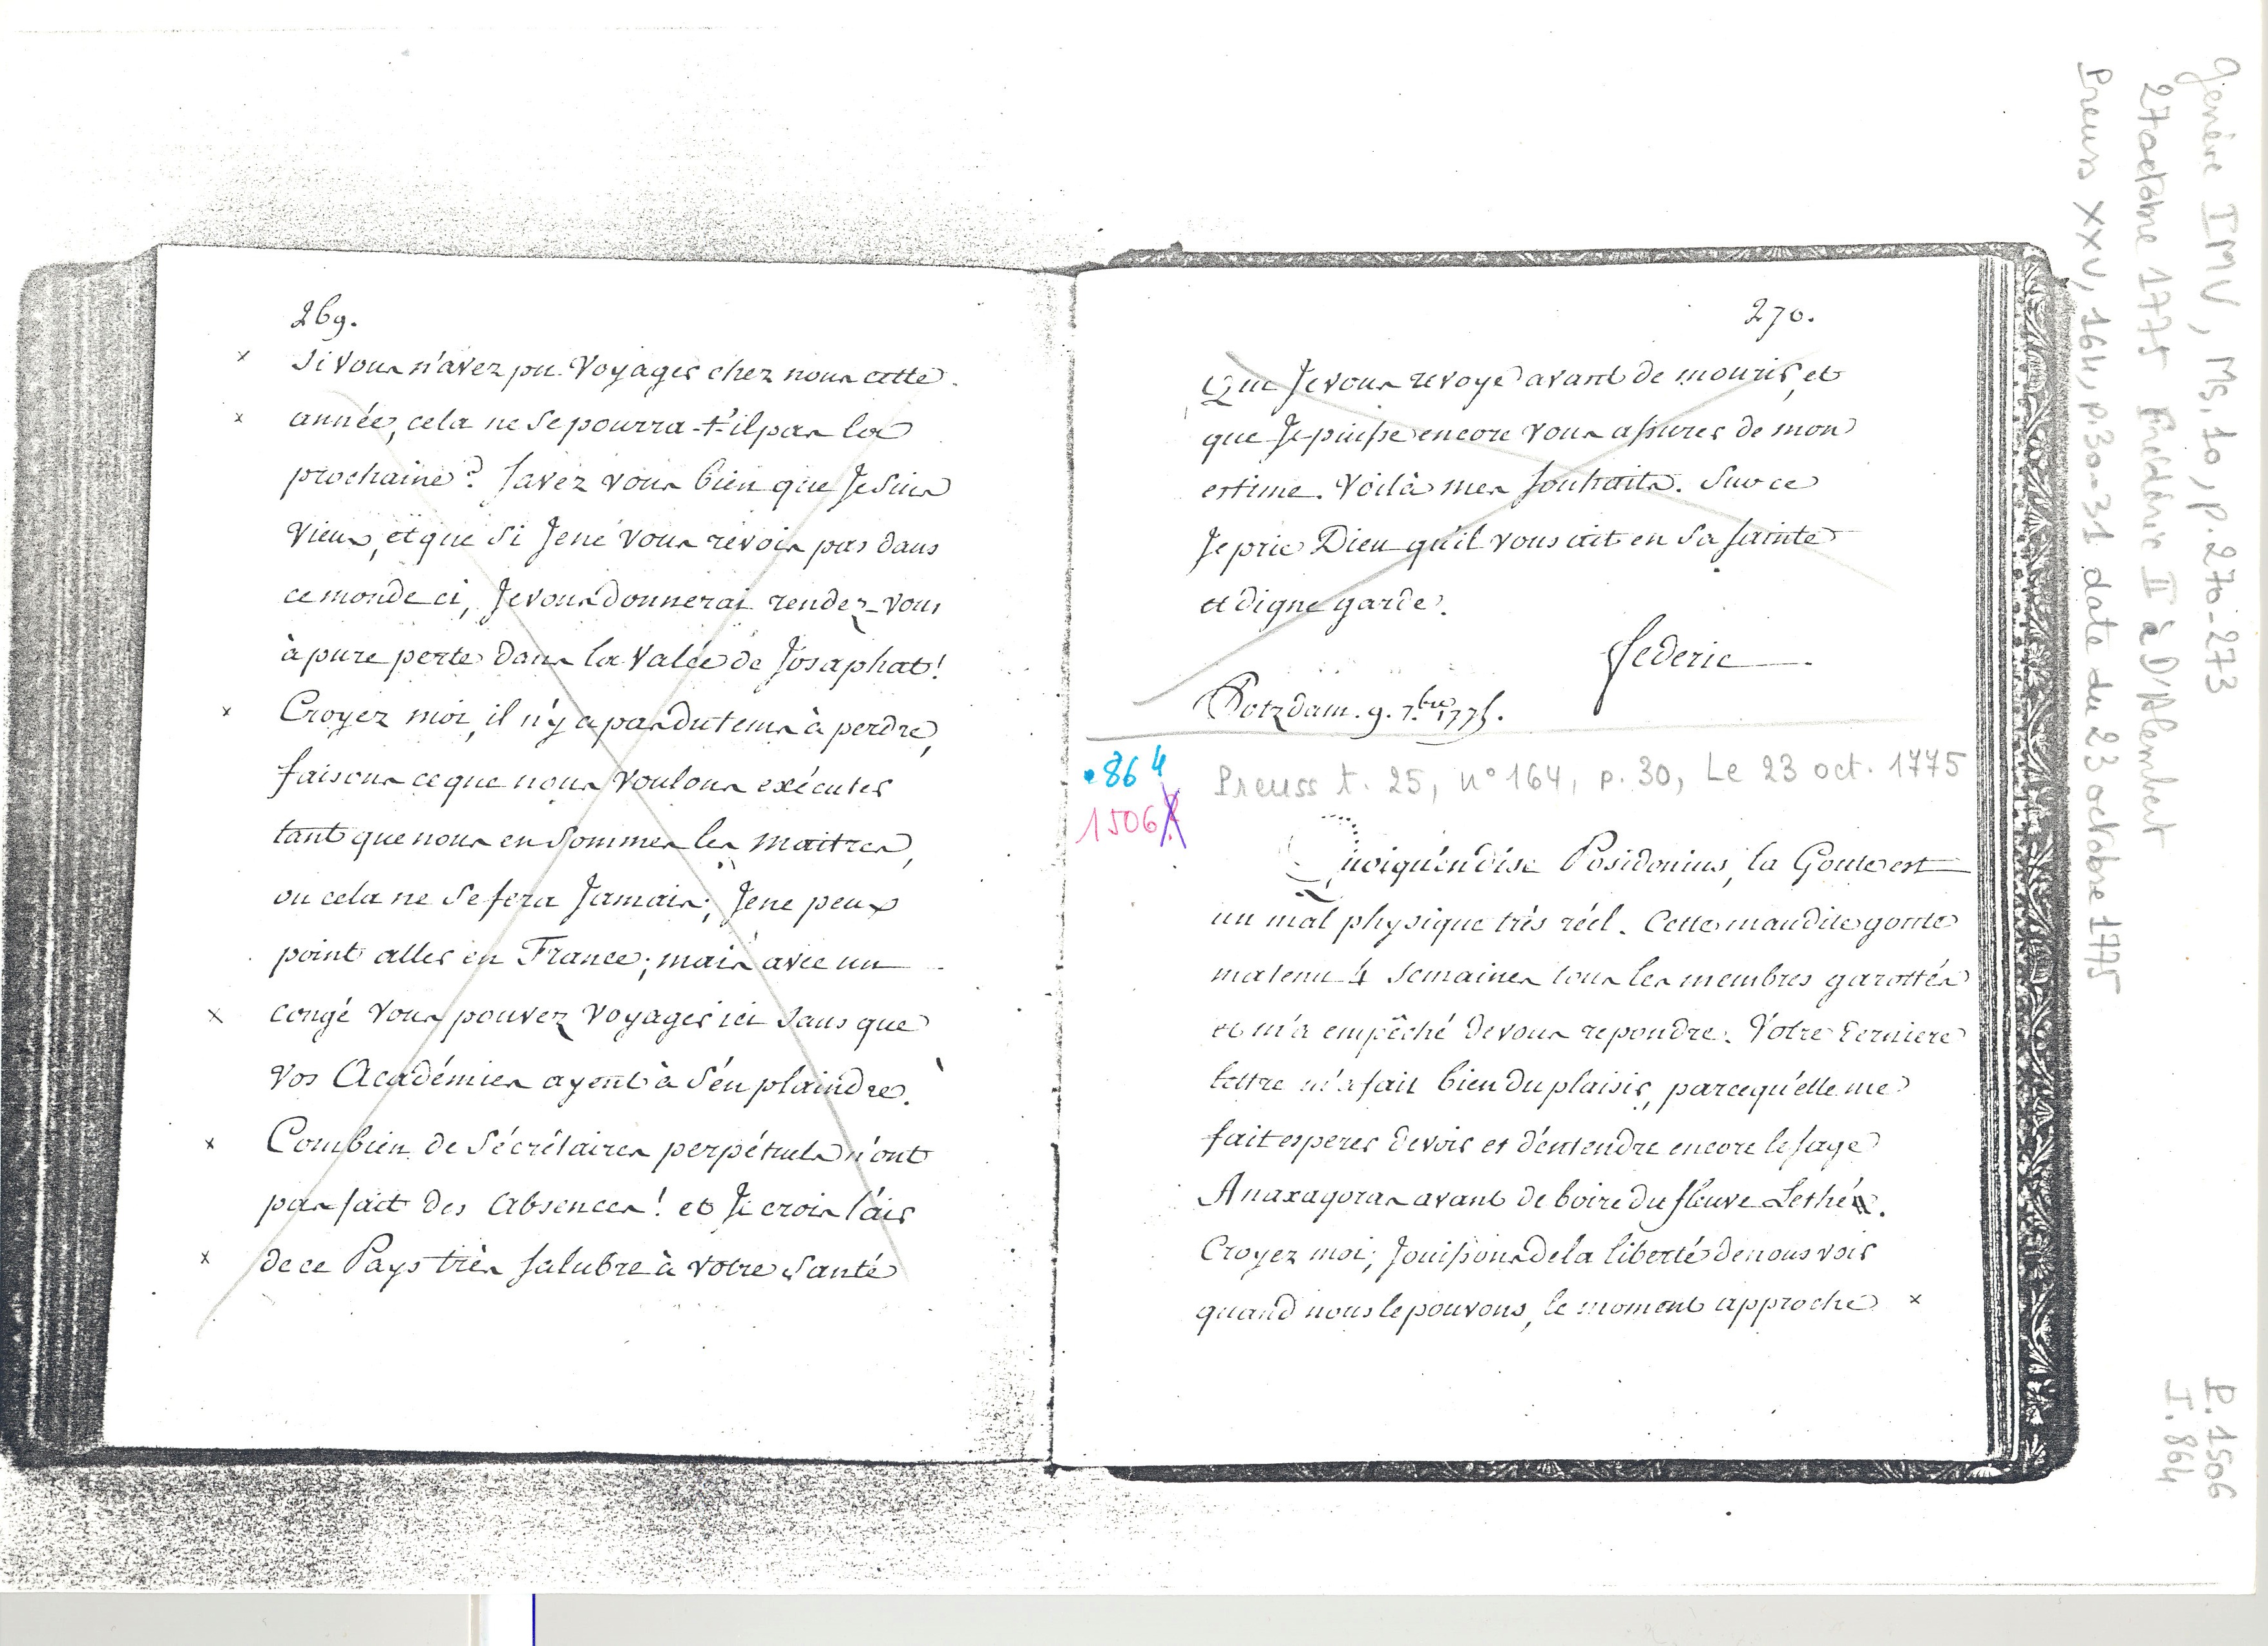 269.
Si vous n'avez pu Voyager chez nous cette
année, cela ne se pourra-t'il pas la
prochaine? Savez vous bien que Je suis
Vieux, et que si Je ne vous revois pas dans
ce monde ci, Je vous donnerai rendez-vous
à pure perte dans la Valée de Josaphat!
Croyez moi, il n'y a pas du tems à perdre,
faisons ce que nous voulons exécuter
tant que nous en sommes les maitres,
ou cela ne se fera Jamais; Je ne peux
point aller en France; mais avec un
congé vous pouvez voyager ici sans que
vos Académies ayent à s'en plaindre.
Combien de Sécrétaires perpétuels n'ont
pas fait des absences! et Je crois l'air
de ce Pays très salubre à votre Santé
270.
Que Je vous revoye avant de mourir, et
que Je puisse encore vous assurer de mon
estime. Voilà mes souhaits. Sur ce
Je prie Dieu qu'il vous ait en sa sainte
et digne garde.
Federic
Potzdam. 9. 7.bre 1775.
864
1506
Preuss t. 25, n° 164, p. 30, Le 23 oct. 1775
Quoiqu'en dise Posidonius, la Goute est
un mal physique très réel. Cette maudite goute
m'a tenu 4 semaines tous les membres garottés
et m'a empêché de vous repondre. Votre derniere
lettre m'a fait bien du plaisir, parcequ'elle me
fait esperer de voir et d'entendre encore le sage
Anaxagoras avant de boire du fleuve Lethé.
Croyez moi; Jouissons de la liberté de nous voir
quand nous le pouvons, le moment approche
Genève IMV, Ms. 10, p. 270-273
27 octobre 1775 Frédéric II à D'Alembert
Preuss XXV, 164, p. 30-31 date du 23 octobre 1775
P. 1506
I. 864